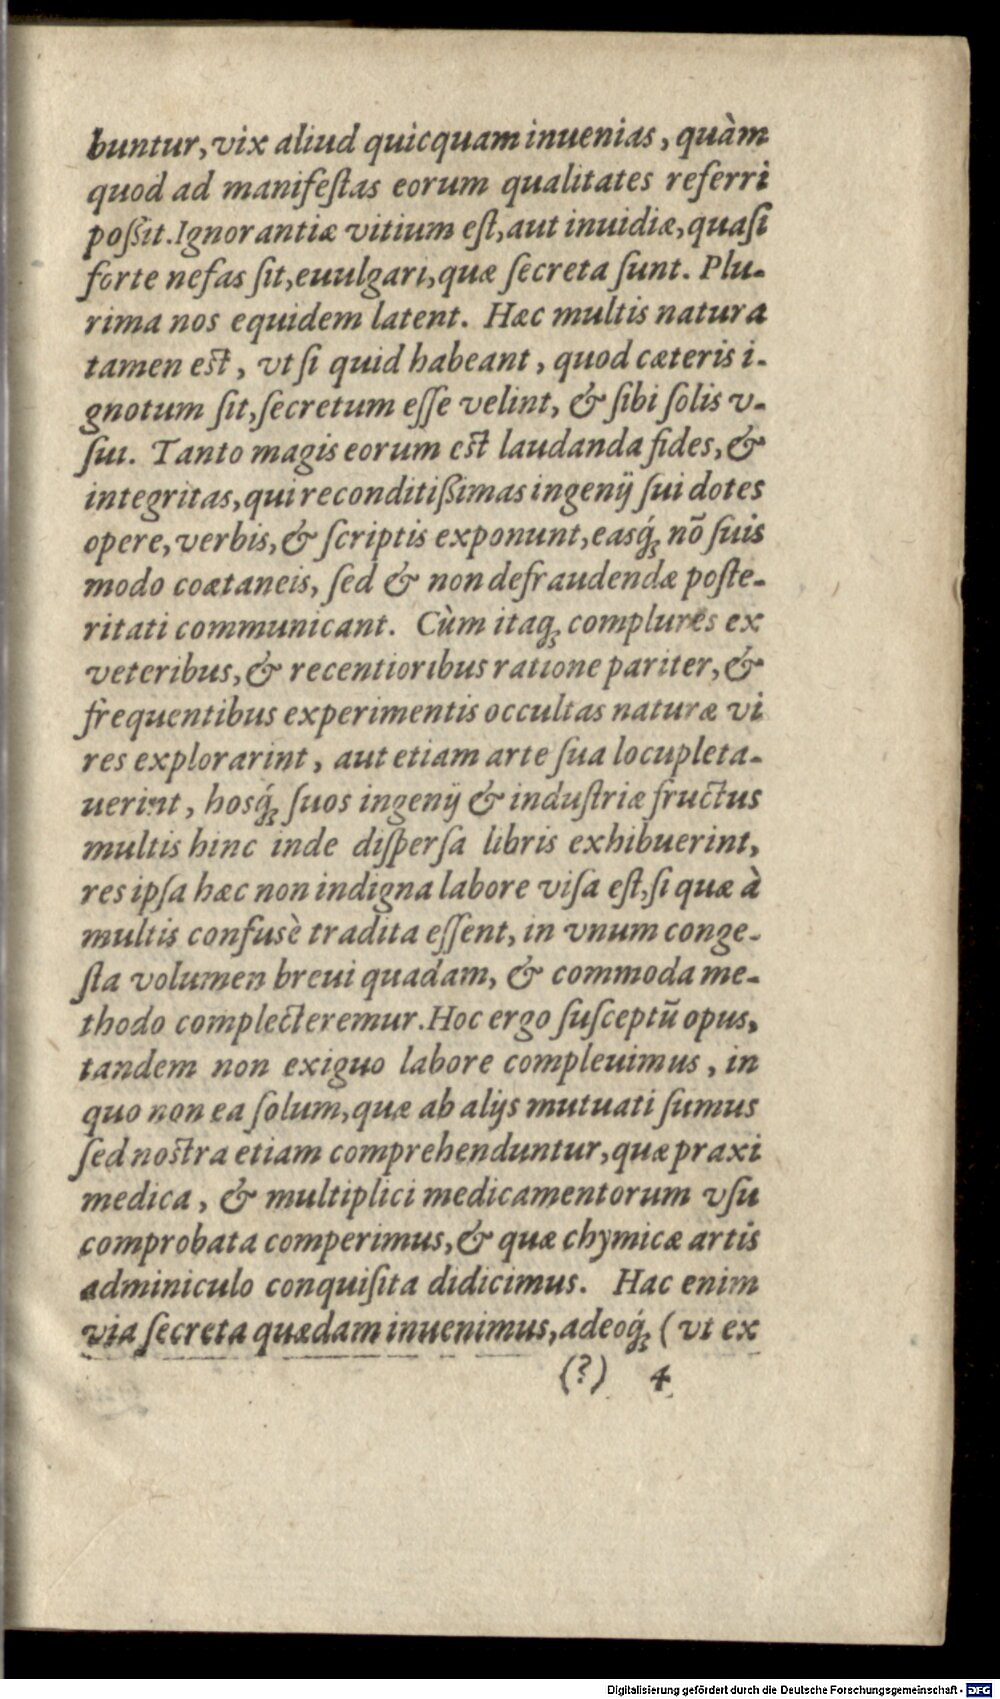 buntur, vix aliud quicquam inuenias, quàm
quod ad manifeſtas eorum qualitates referri
poßit. Ignorantiæ vitium eſt, aut inuidiæ, quaſi
forte nefas ſit, euulgari, quæ ſecreta ſunt. Plu-
rima nos equidem latent. Hæc multis natura
tamen eſt, vt ſi quid habeant, quod cæteris i-
gnotum ſit, ſecretum eſſe velint, & ſibi ſolis v-
ſui. Tanto magis eorum eſt laudanda fides, &
integritas, qui reconditißimas ingenij ſui dotes
opere, verbis, & ſcriptis exponunt, easq́; nõ ſuis
modo coætaneis, ſed & non defraudendæ poſte-
ritati communicant. Cùm itaq; complures ex
veteribus, & recentioribus ratione pariter, &
frequentibus experimentis occultas naturæ vi
res explorarint, aut etiam arte ſua locupleta-
uerint, hosq́; ſuos ingenij & induſtriæ fructus
multis hinc inde diſperſa libris exhibuerint,
res ipſa hæc non indigna labore viſa eſt, ſi quæ à
multis confusè tradita eſſent, in vnum conge-
ſta volumen breui quadam, & commoda me-
thodo complecteremur. Hoc ergo ſuſceptũ opus,
tandem non exiguo labore compleuimus, in
quo non ea ſolum, quæ ab alijs mutuati ſumus
ſed noſtra etiam comprehenduntur, quæ praxi
medica, & multiplici medicamentorum vſu
comprobata comperimus, & quæ chymicæ artis
adminiculo conquiſita didicimus. Hac enim
via ſecreta quædam inuenimus, adeoq́; (vt ex
(?) 4
Digitalisierung gefördert durch die Deutsche Forschungsgemeinschaft - DFG